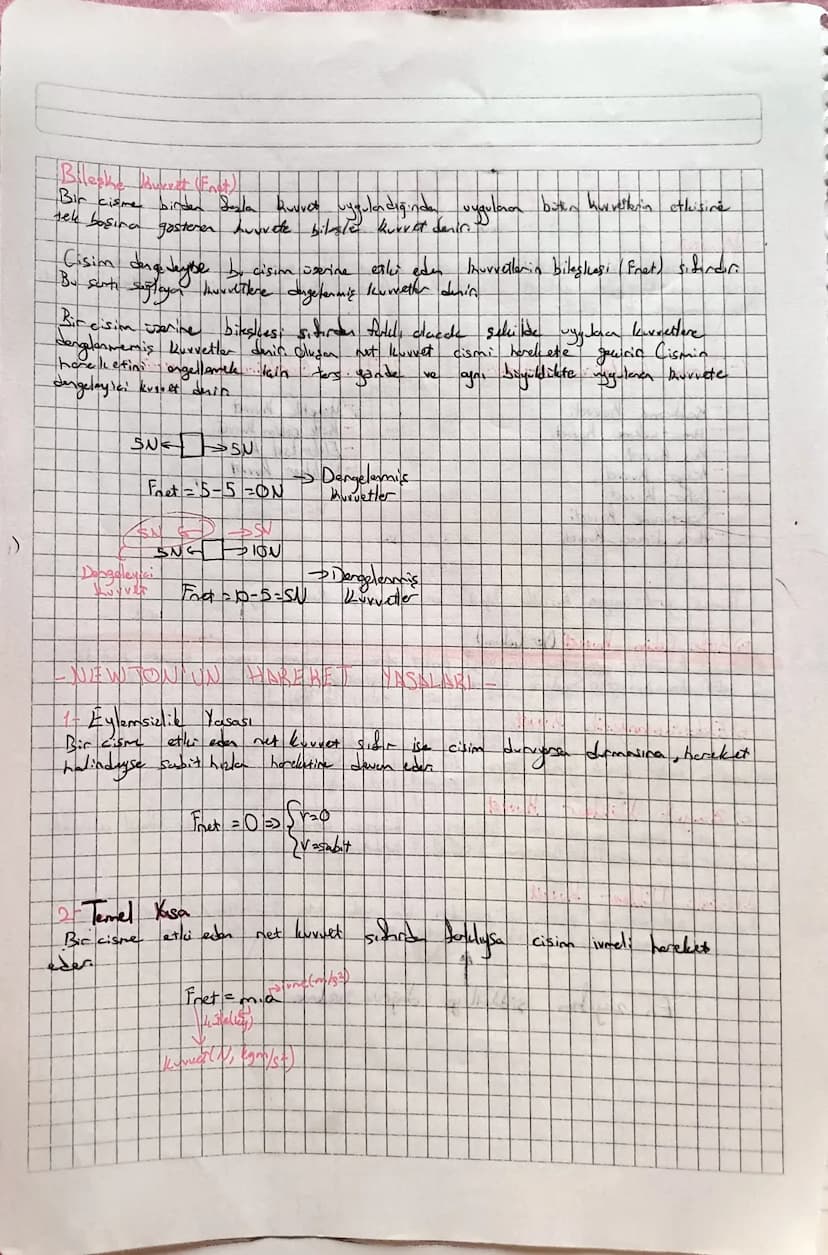 Bileşke kuvvet (Fnet)
Bir cisme birden fazla kuvvet uygulandığında uygulanan bütün kuvvetlerin etkisini
tek başına gösteren kuvvete bileşke kuvvet denir.
Cisim dengedeyse bu cisim üzerine etki eden kuvvetlerin bileşkesi (Fnet) sıfırdır.
Bu şartı sağlayan kuvvetlere dengelenmiş kuvvetler denir
Bir cisim üzerine bileşkesi sıfırdan farklı olacak şekilde uygulanan kuvvetlere
dengelenmemiş kuvvetler denir. Oluşan net kuvvet cismi harekete geçirir. Cismin
hareketini engellemek için ters yönde ve aynı büyüklükte uygulanan kuvvete
dengeleyici kuvvet denir.
5N ← → 5N
Fnet = 5-5 = 0N → Dengelenmiş
kuvvetler
5N ← → 5N
5N ← → 10N
Dengeleyici
kuvvet
Fnet = 10-5=5N → Dengelenmiş
kuvvetler
- NEWTON'UN HAREKET YASALARI -
1- Eylemsizlik Yasası
Bir cisme etki eden net kuvvet sıfır ise cisim duruyorsa durmasına, hareket
halindeyse sabit hızla hareketine devam eder.
Fnet = 0 ⇒ { v=0
{ v=sabit
2- Temel Yasa
Bir cisme etki eden net kuvvet sıfırdan farklıysa cisim ivmeli hareket
eder.
Fnet = m.a → ivme(m/s2)
kütle(kg)
kuvvet(N, kgm/s2)